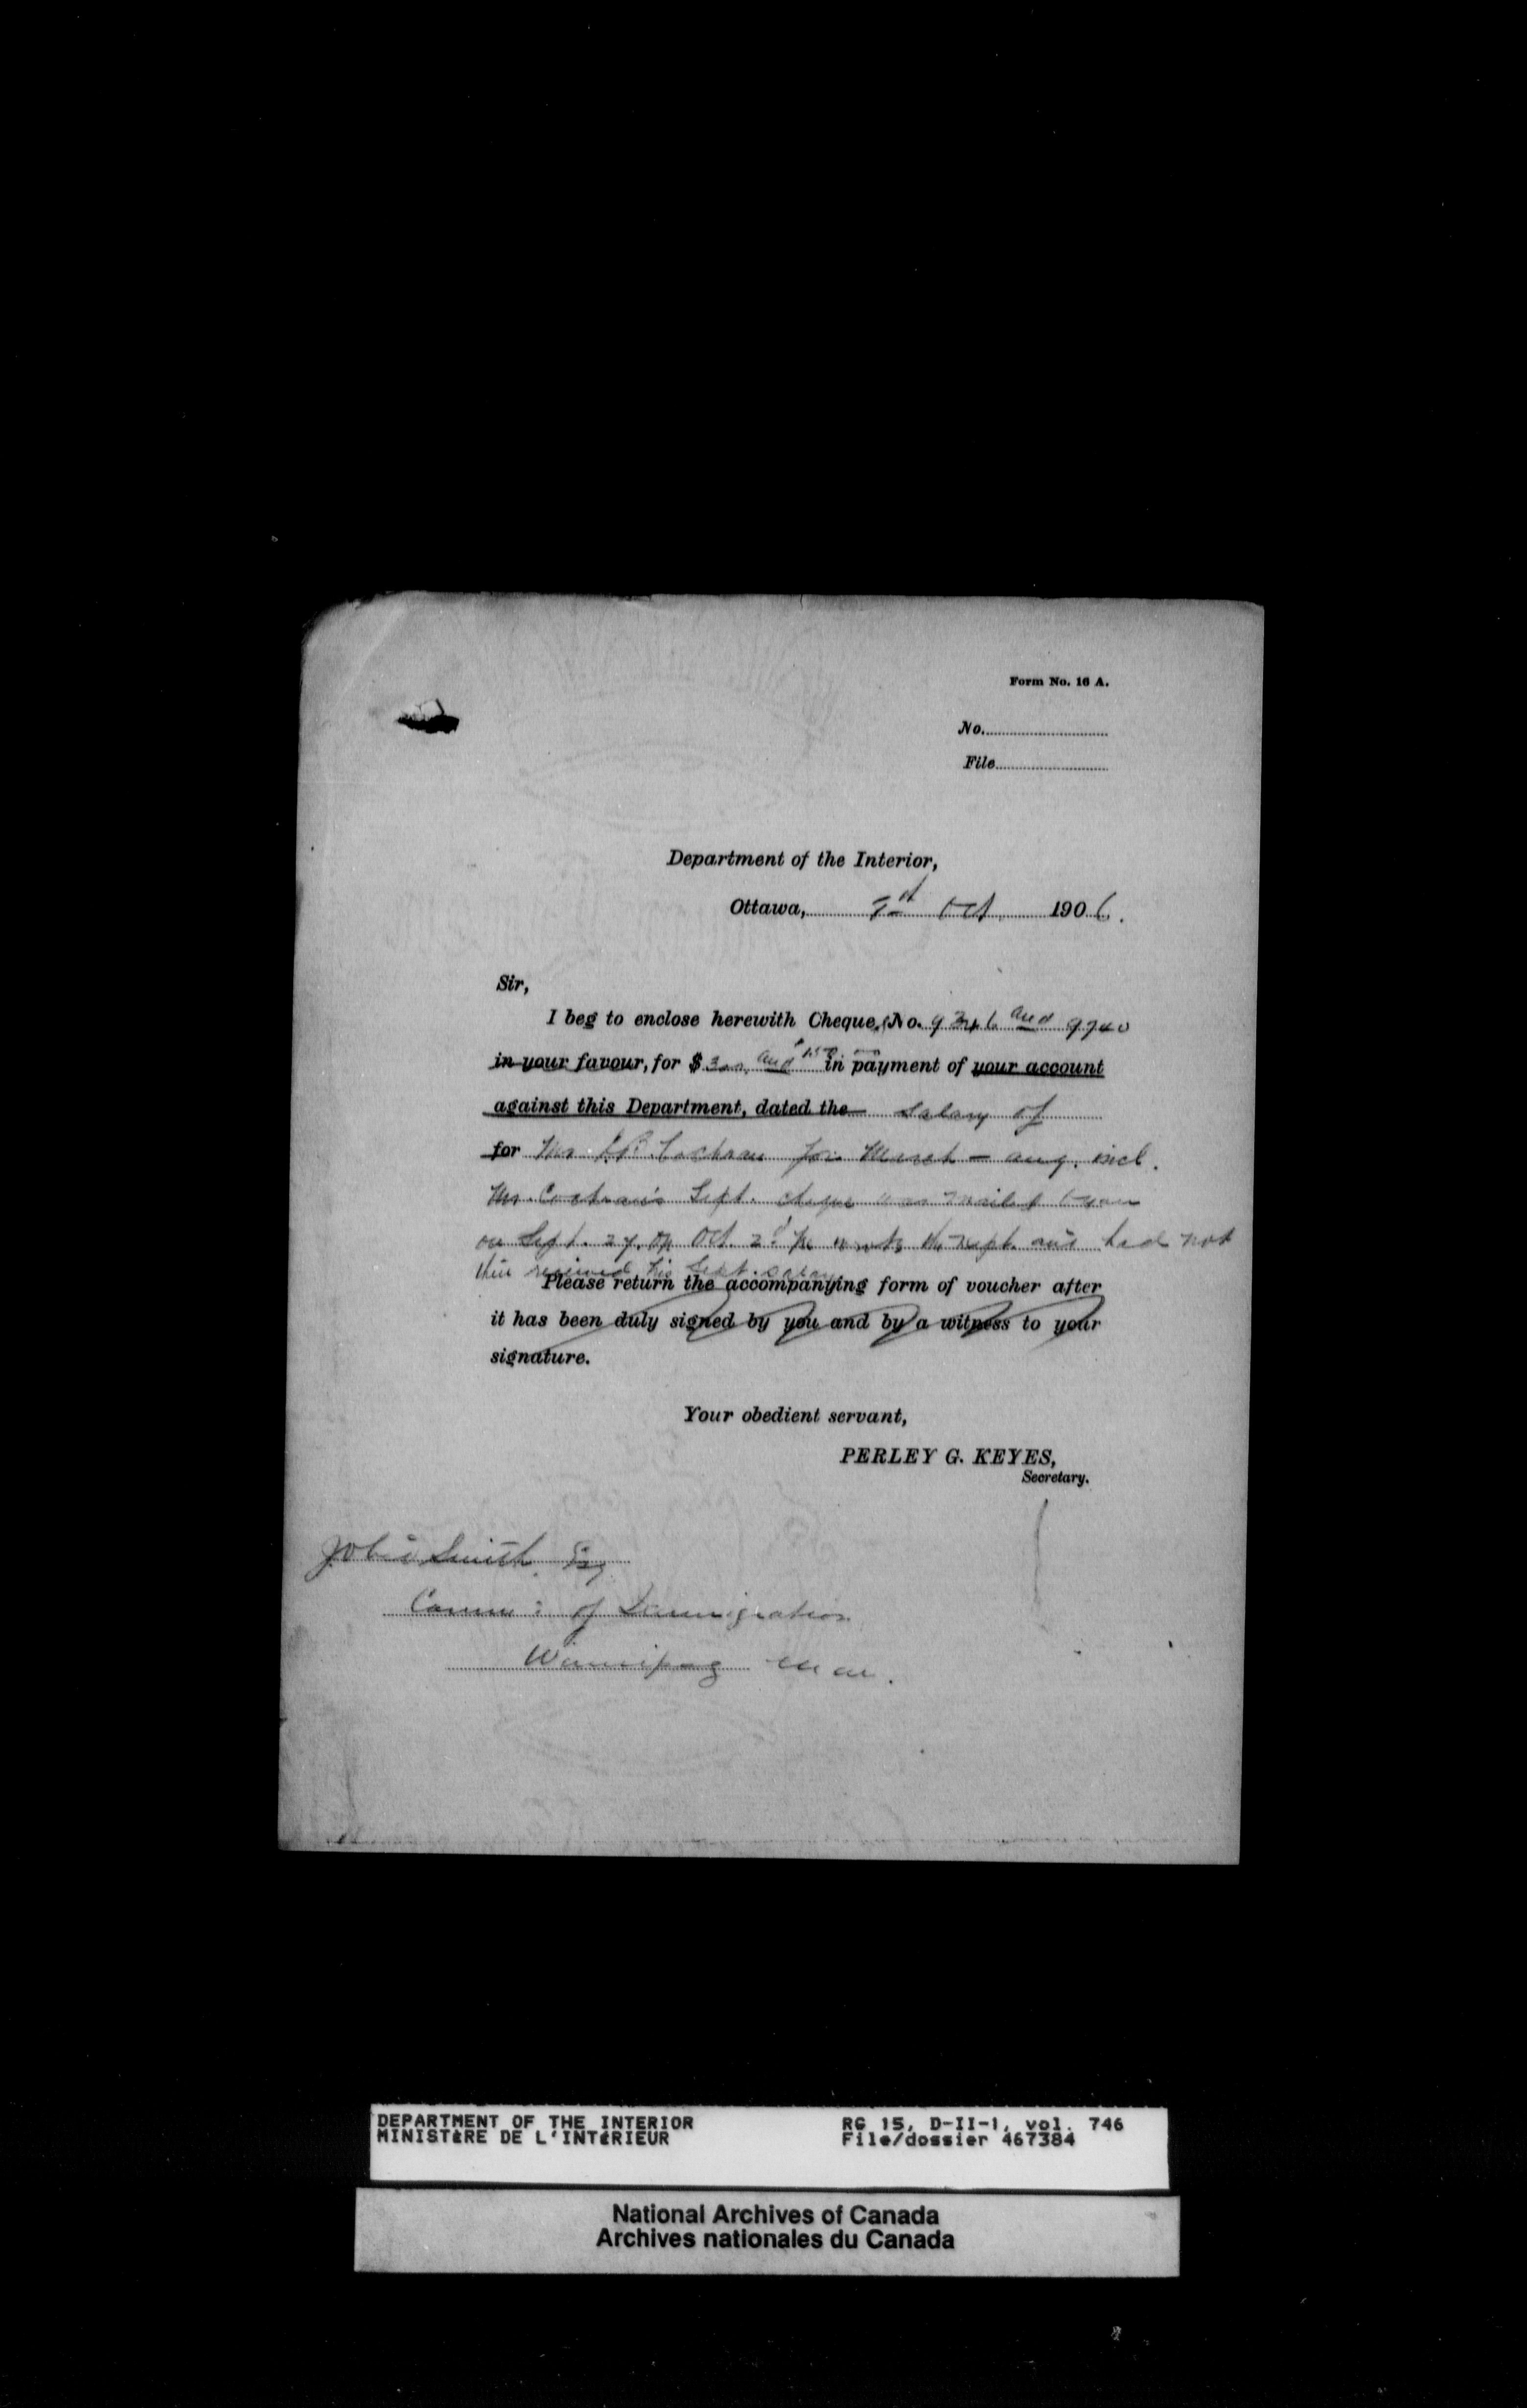 Form No. 16 A.
No.
File
Department of the Interior,
Ottawa, Oct. 1906.
Sir,
I beg to enclose herewith Cheque No. 9346 and 9740
in your favour, for $300. and 150. in payment of your account
against this Department, dated the salary of
for Mr Cochran for March - Aug. incl.
Mr. Cochran's Sept. cheque was mailed
on Sept. 27. On Oct. 2d he wrote the Dept. and had not
then received his Sept. salary
Please return the accompanying form of voucher after
it has been duly signed by you and by a witness to your
signature.
Your obedient servant,
PERLEY G. KEYES,
Secretary.
Smith, Esq
Comm: of Immigration
Winnipeg Man.
DEPARTMENT OF THE INTERIOR
MINISTÈRE DE L'INTÉRIEUR
RG 15, D-II-1, vol. 746
File/dossier 467384
National Archives of Canada
Archives nationales du Canada